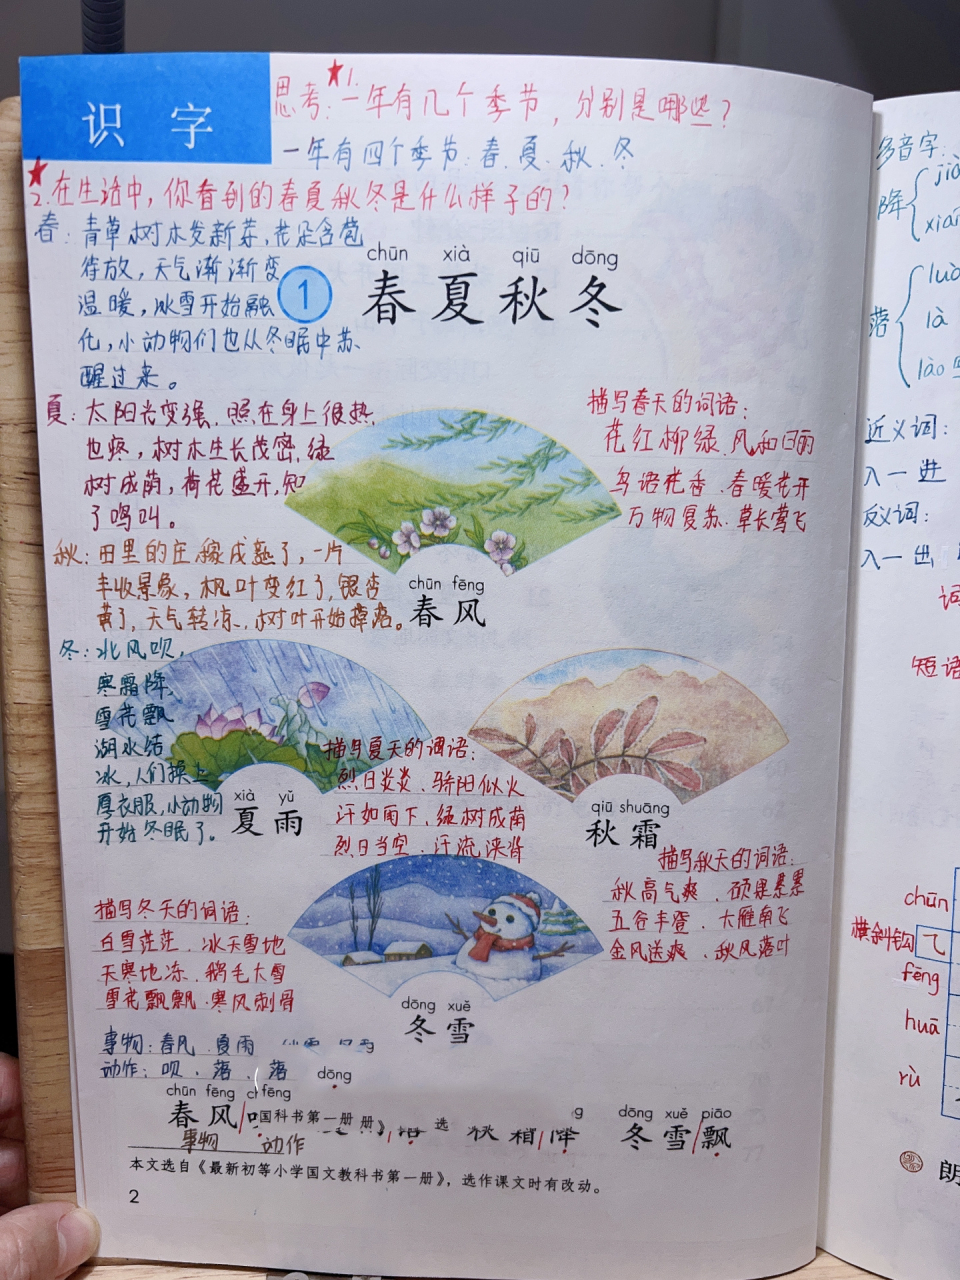 识 字
思考:1.一年有几个季节,分别是哪些?
一年有四个季节:春、夏、秋、冬
2.在生活中,你看到的春夏秋冬是什么样子的?
春:青草树木发新芽,花朵含苞
待放,天气渐渐变
温暖,冰雪开始融
化,小动物们也从冬眠中苏
醒过来。
chūn xià qiū dōng
1 春夏秋冬
夏:太阳光变强、照在身上很热
也疼,树木生长茂密,绿
树成荫,荷花盛开,知
了鸣叫。
描写春天的词语:
花红柳绿、风和日丽
鸟语花香、春暖花开
万物复苏、草长莺飞
秋:田里的庄稼成熟了,一片
丰收景象,枫叶变红了,银杏
黄了,天气转凉,树叶开始掉落。
chūn fēng
春风
冬:北风呗,
寒霜降,
雪花飘
湖水结
冰,人们换上
厚衣服,小动物
开始冬眠了。
xià yǔ
夏雨
描写夏天的词语:
烈日炎炎、骄阳似火
汗如雨下、绿树成荫
烈日当空、汗流浃背
qiū shuāng
秋霜
描写秋天的词语:
秋高气爽、硕果累累
五谷丰登、大雁南飞
金风送爽、秋风落叶
描写冬天的词语:
白雪茫茫、冰天雪地
天寒地冻、鹅毛大雪
雪花飘飘、寒风刺骨
dōng xuě
冬雪
事物:春风、夏雨
动作:呗、落、落
dōng
chūn fēng fēng
春风
国科书第一册 册 》 选
g
降
dōng xuě piāo
冬雪飘
事物 动作
本文选自《最新初等小学国文教科书第一册》,选作课文时有改动。
2
多音字:
降
luò
là
lào
落
近义词:
入一进
反义词:
入一出
词
短语
chūn
横斜钩 ⺄
fēng
huā
rù
朗